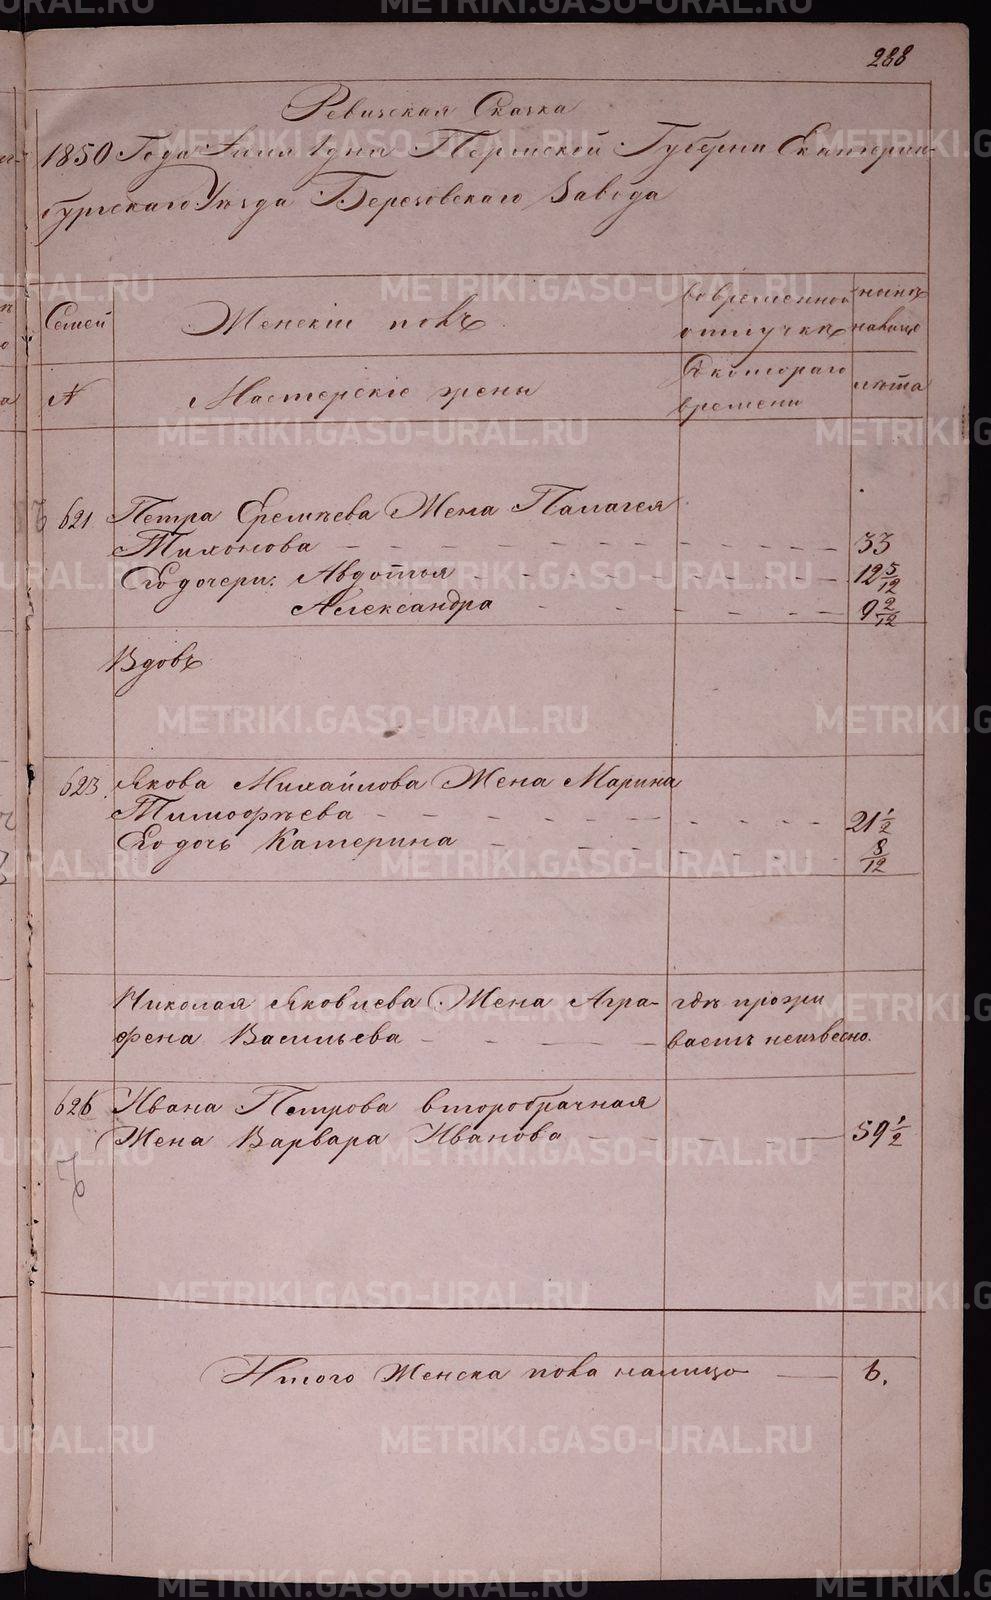 288
Ревизская Сказка
1850 Года Юлля 1 дня Пермской Губерни Екатерин-
бургскаго Уезда Березовскаго Завода
Семей
Женскiй полъ
во временной
отлучкѣ
нынѣ
на лицо
№
Мастерскiе жены
Съ котораго
времени
лѣта
621 Петра Еремѣева Жена Палагея
Тихонова 33
Его дочери: Авдотья 12 5/12
Александра 9 2/12
Вдовъ
623. Якова Михайлова Жена Марина
Тимофѣева 21 1/2
Его дочь Катерина 8/12
Николая Яковлева Жена Агра- гдѣ прожи
фена Васильева ваетъ неизвесно.
626 Ивана Петрова второбрачная
Жена Варвара Иванова 59 1/2
Итого Женска пола налицо 6.
METRIKI.GASO-URAL.RU